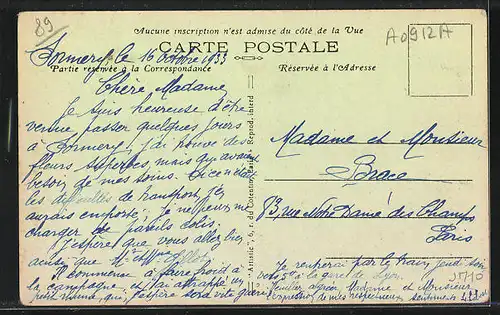 89
A0912A
Aucune inscription n'est admise du côté de la Vue
CARTE POSTALE
Partie réservée à la Correspondance
Réservée à l'Adresse
Cormery, le 16 octobre 1933
Chère Madame,
Je suis heureuse d'être
venue passer quelques jours
à Cormery, j'ai trouvé des
fleurs superbes, mais qui avaient
besoin de mes soins. Si ce n'était
les difficultés de transport, j'en
aurais emporté, je ne peux me
charger de pareils colis.
J'espère que vous allez bien
ainsi que M. et Mme
Il commence à faire froid à
la campagne et j'ai attrapé un
petit rhume, qui, j'espère sera vite guéri.
"Artistic" 6, r. du Cotentin, Paris. - Reprod. interd
Madame et Monsieur
Brace
83, rue Notre Dame des Champs
Paris
Je rentrerai par le train jeudi soir
vers 5h à la gare de Lyon.
Veuillez agréer Madame et Monsieur
l'expression de mes respectueux sentiments.